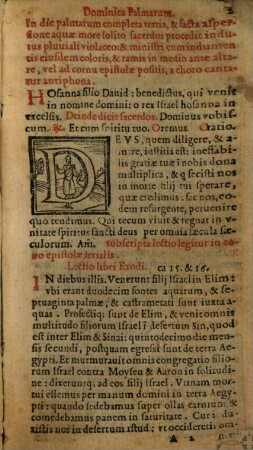 Dominica Palmarum.
In die palmarum completa tertis, & facta asper-
sione aquæ more solito sacerdos procedit indu-
tus pluuiali violaceo: & ministri cum indumentis
eiusdem coloris, & ramis in medio ante alta-
re, vel ad cornu epistolæ positis, a choro canta-
tur antiphona.
HOsanna filio Dauid: benedictus, qui venit
in nomine domini: o rex Israel hosanna in
excelsis. Deinde dicit sacerdos. Dominus vobis
cum. ℞. Et cum spiritu tuo. Oremus. Oratio.
DEVS, quem diligere, & a-
mare, iustitia est: ineffabi-
lis gratiæ tuæ in nobis dona
multiplica, & q fecisti nos
in morte filij tui sperare,
quæ credimus: fac nos, eo-
dem resurgente, peruenire
quo tendimus. Qui tecum viuit & regnat in v-
nitate spiritus sancti deus per omnia sæcula sæ-
culorum. Am̄. Subscripta lectio legitur in to-
no epistolæ ferialis.
Lectio libri Exodi. ca 15. & 16.
IN diebus illis. Venerunt filij Israel in Elim: v-
bi erant duodecim fontes aquarum, & se-
ptuaginta palmæ, & castrametati sunt iuxta a-
quas. Profectiq; sunt de Elim, & venit omnis
multitudo filiorum Israel ī desertum Sin, quod
est inter Elim & Sinai: quintodecimo die men-
sis secundi, postquam egressi sunt de terra Ae-
gypti. Et murmurauit omnis congregatio filio-
rum Israel contra Moysen & Aaron in solitudi-
ne: dixeruntq; ad eos filij Israel. Vtinam mor-
tui essemus per manum domini in terra Aegy-
pti: quando sedebamus super ollas carnium, &
comedebamus panem in saturitate. Cur i-
duxistis nos in desertum istud: vt occideretis om-
A 2